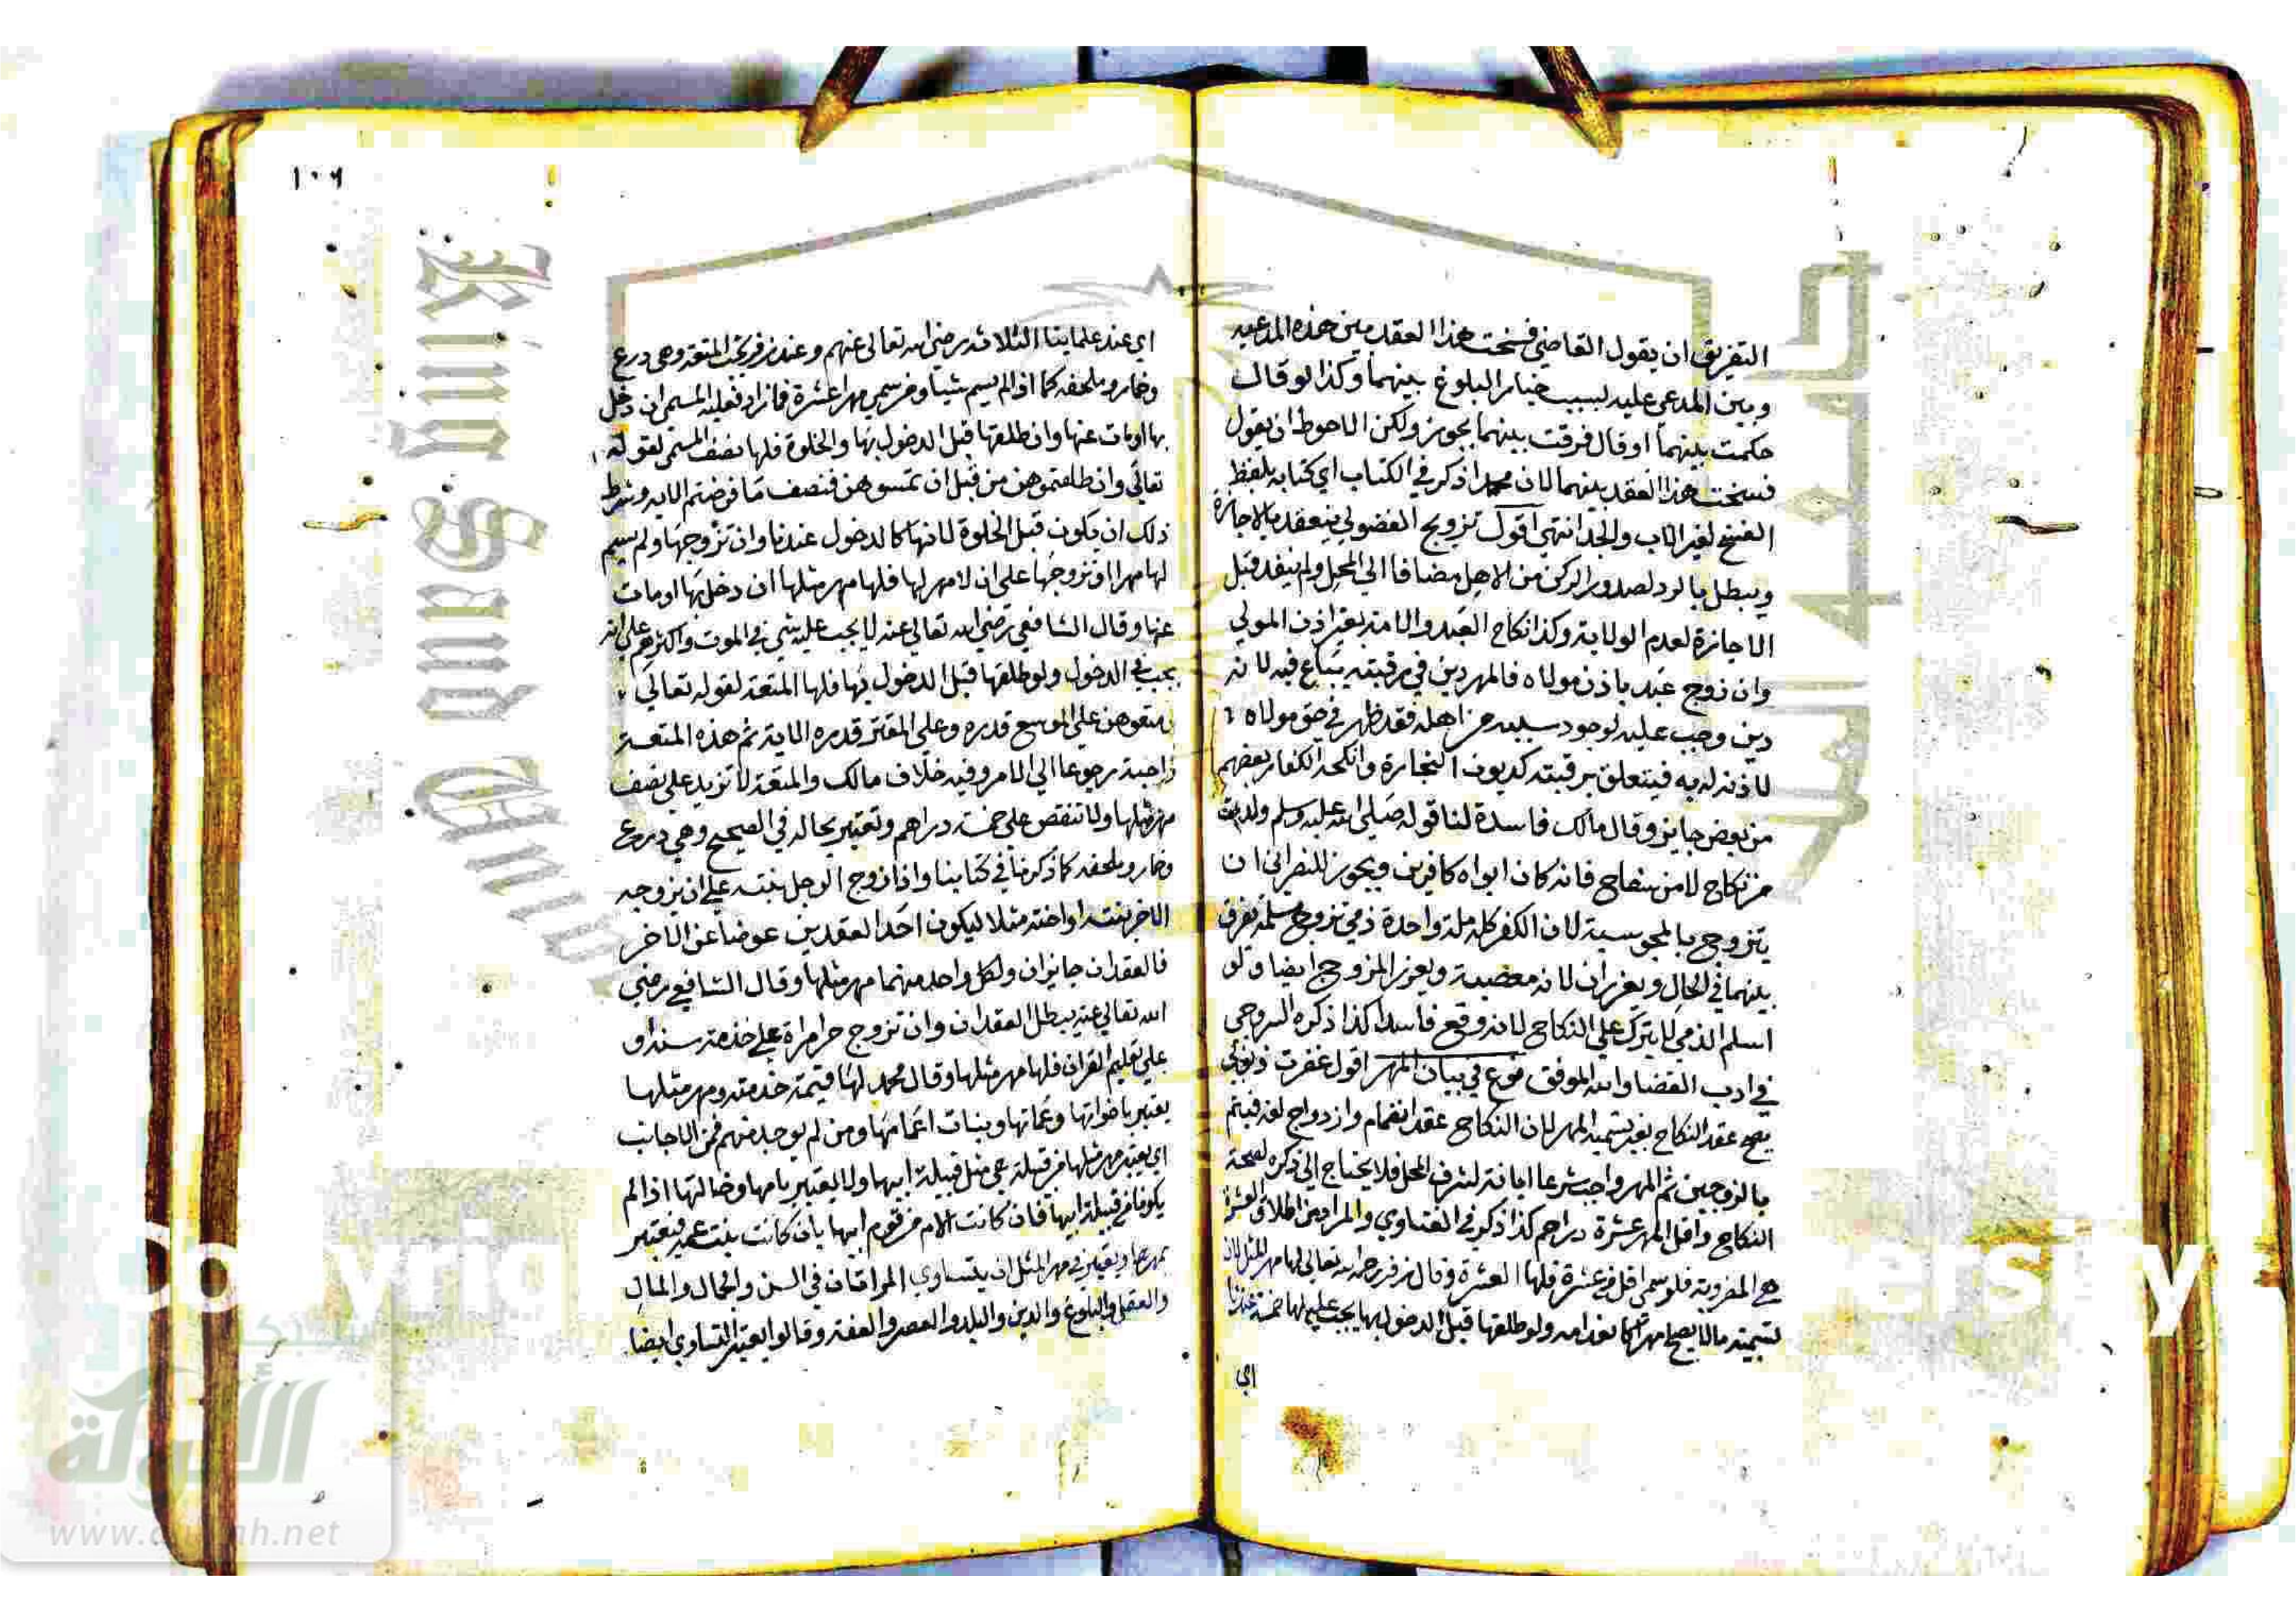 التفريق ان يقول القاضي فسخت هذا العقد بين هذه المدعيه
وبين المدعي عليه لسبب خيار البلوغ بينهما وكذا لو قال
حكمت بينهما او قال فرقت بينهما يجوز ولكن الاحوط ان يقول
فسخت هذا العقد بينهما لان محمدا ذكر في الكتاب اي كتابه بلفظ
الفسخ لغير الاب والجد انتهي اقول تزويج الفضولي ينعقد بالاجازة
ويبطل بالرد لصدور الركن من الاهل مضافا الي المحل ولم ينفد قبل
الاجازة لعدم الولاية وكذا نكاح العبد والامة بغير اذن المولي
وان زوج عبد باذن مولاه فالمهر دين في رقبته يباع فيه لانه
دين وجب عليه لوجود سببه من اهله فقد ظهر في حق مولاه
لاذنه له به فيتعلق برقبته كديون التجارة وانكحة الكفار بعضهم
من بعض جايز وقال مالك فاسدة لنا قوله صلي الله عليه وسلم ولدت
من نكاح لا من سفاح فانه كان ابواه كافرين ويجوز للنصراني ان
يتزوج بالمجوسية لان الكفر كله ملة واحدة ذمي تزوج مسلمة يفرق
بينهما في الحال ويعزران لانه معصية ويعزر المزوج ايضا ولو
اسلم الذمي لا يترك علي النكاح لانه وقع فاسدا كذا ذكره السروجي
في ادب القضا والله الموفق فرع في بيان المهر اقول غفرت ذنوبي
يصح عقد النكاح بغير تسمية المهر لان النكاح عقد انضمام وازدواج لغة فيتم
بالزوجين ثم المهر واجب شرعا ابانة لشرف المحل فلا يحتاج الي ذكره لصحة
النكاح واقل المهر عشرة دراهم كذا ذكر في الفتاوي والمراد من اطلاق العشرة
هي المضروبة فلو سمي اقل من عشرة فلها العشرة وقال زفر رحمه الله تعالي لها مهر المثل لان
تسمية مالا يصلح مهرا كانعدامه ولو طلقها قبل الدخول بها يجب عليه لها خمسة عندنا
اي
١٠٦
اي عند علماينا الثلاثة رضي الله تعالي عنهم وعند زفر يجب المتعة وهي درع
وخمار وملحفه كما اذا لم يسم شيا ومن سمي مهرا عشرة فما زاد فعليه المسمي ان دخل
بها او مات عنها وان طلقها قبل الدخول بها والخلوة فلها نصف المسمي لقوله
تعالي وان طلقتموهن من قبل ان تمسوهن فنصف ما فرضتم الاية وشرط
ذلك ان يكون قبل الخلوة لانها كالدخول عندنا وان تزوجها ولم يسم
لها مهرا او تزوجها علي ان لا مهر لها فلها مهر مثلها ان دخل بها او مات
عنها وقال الشافعي رضي الله تعالي عنه لا يجب عليه شي في الموت واكثرهم علي انه
يجب في الدخول ولو طلقها قبل الدخول بها فلها المتعة لقوله تعالي
متعوهن علي الموسع قدره وعلي المقتر قدره الاية ثم هذه المتعة
واجبة رجوعا الي الامر وفيه خلاف مالك والمتعة لا تزيد علي نصف
مهر مثلها ولا تنقص علي خمسة دراهم وتعتبر بحاله في الصحيح وهي درع
وخمار وملحفه كما ذكرنا في كتابنا واذا زوج الرجل بنته علي ان يزوجه
الاخر بنته او اخته مثلا ليكون احد العقدين عوضا عن الاخر
فالعقدان جايزان ولكل واحد منهما مهر مثلها وقال الشافعي رضي
الله تعالي عنه يبطل العقدان وان تزوج حر امراة علي خدمته سنة او
علي تعليم القران فلها مهر مثلها وقال محمد لها قيمة خدمته ومهر مثلها
يعتبر باخواتها وعماتها وبنات اعمامها ومن لم يوجد منهم فمن الاجانب
اي يعتبر مهر مثلها من قبيلة هي مثل قبيلة ابيها ولا يعتبر بامها وخالتها اذا لم
يكونا من قبيلة ابيها فان كانت الام من قوم ابيها بان كانت بنت عمه فيعتبر
بمهرها ويعتبر في مهر المثل ان يتساوي المراتان في السن والجمال والمال
والعقل والبلوغ والدين والبلد والعصر والعفة وقالوا يعتبر التساوي ايضا
King Saud University
Copyright
الألوكة
www.alukah.net